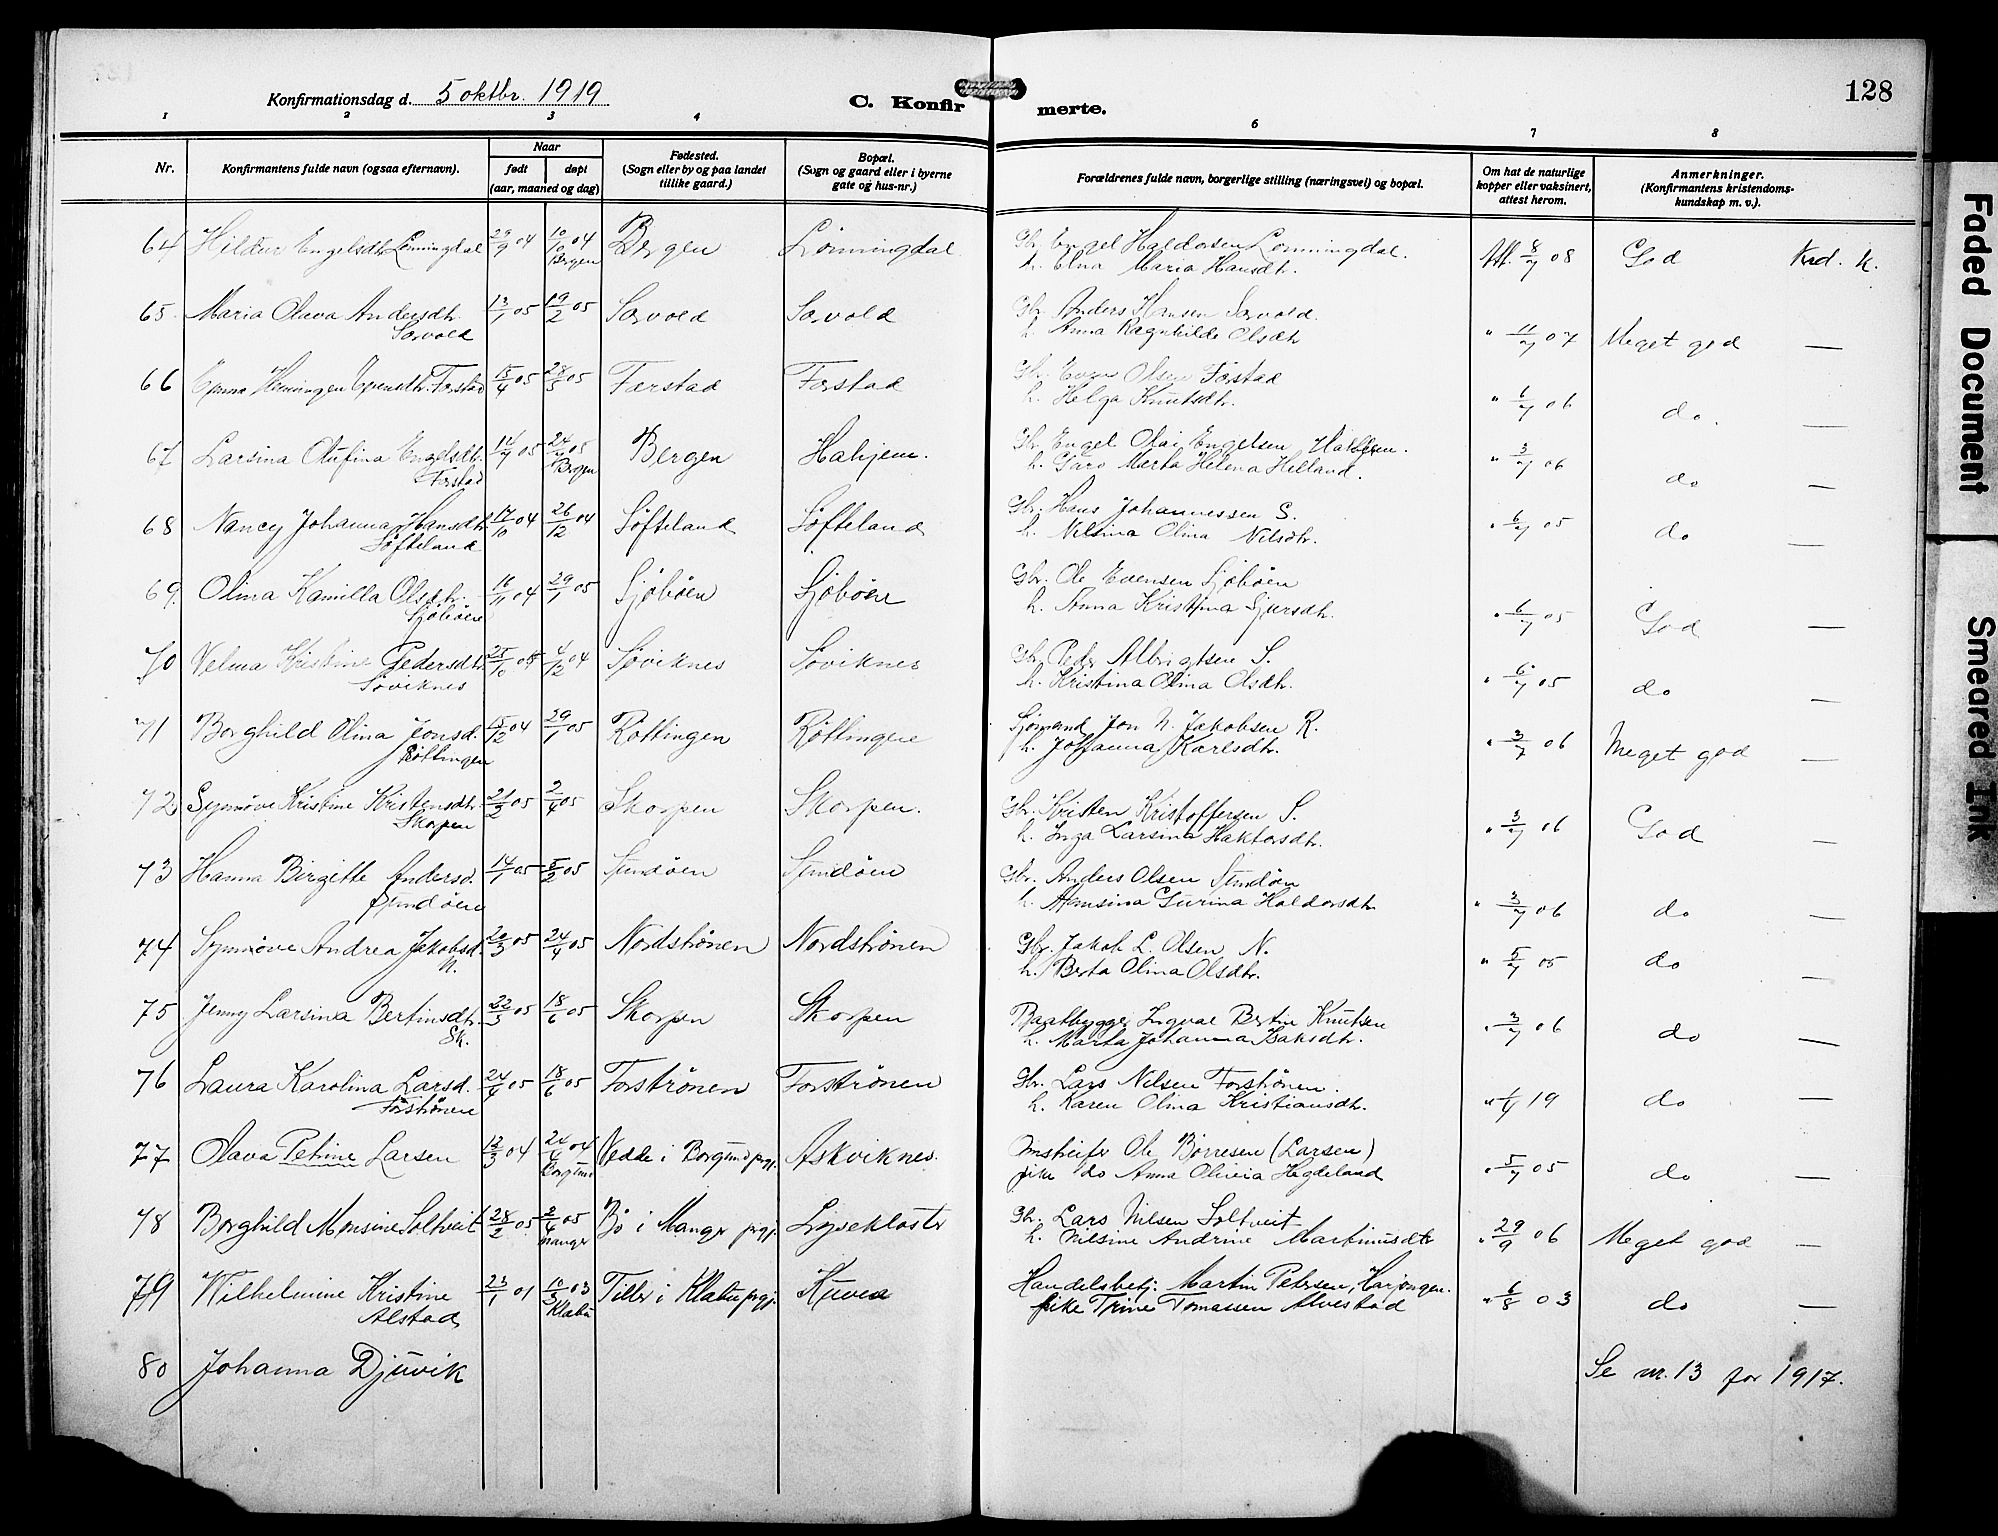 Konfirmationsdag d. 5 oktbr. 1919
C. Konfirmerte.
128
1 2 3 4 5 6 7 8
Nr.
Konfirmantens fulde navn (ogsaa efternavn).
Naar
født døpt
(aar, maaned og dag)
Fødested.
(Sogn eller by og paa landet
tillike gaard.)
Bopæl.
(Sogn og gaard eller i byerne
gate og hus-nr.)
Forældrenes fulde navn, borgerlige stilling (næringsvei) og bopæl.
Om hat de naturlige
kopper eller vaksinert,
attest herom.
Anmerkninger.
(Konfirmantens kristendoms-
kundskap m. v.).
64 Hildur Engelsdtr. Lønningdal 29/9 04 10/10 04 Bergen Bergen Lønningdal
Gbr. Engel Haldorsen Lønningdal. Att. 8/7 08 God Krd. K.
h. Elna Maria Hansdtr.
65. Maria Olava Andersdtr. Sørvold 13/1 05 19/2 05 Sørvold Sørvold
Gbr. Anders Hansen Sørvold.
h. Anna Ragnhilde Olsdtr. " 11/7 07 Meget god —
66 Emma Henningen Evensdtr. Førstad 15/4 05 28/5 05 Førstad Førstad
Gbr. Even Olsen Førstad
h. Helga Knutsdtr. " 6/7 06 do. —
67 Larsina Olufina Engelsdtr. Førstad 05 Bergen Bergen Hahjem.
Gbr. Engel Olai Engelsen
h. Marta Helena Helland. " 3/7 06 do —
68 Nancy Johanna Hansdtr. Søfteland 17/10 04 26/12 04 Søfteland Søfteland
Gbr. Hans Johannessen S.
h. Nilsina Olina Nilsdtr. " 6/7 05 do —
69. Olina Kamilla Olsdtr. Sjøbøen 16/11 04 29/1 05 Sjøbøen Sjøbøen
Gbr. Ole Evensen Sjøbøen
h. Anna Kristina Sjursdtr. " 6/7 05 God —
70 Velma Kristine Pedersdtr. Søviknes 25/10 4/12 04 Søviknes Søviknes
Gbr. Peder Albrigtsen S.
h. Kristina Olina Olsdtr. " 6/7 05 do —
71 Borghild Olina Jonsd. Røttingen 15/12 04 29/1 05 Røttingen Røttingen
Sjømand Jon N. Jakobsen R.
h. Johanna Karlsdtr. " 3/7 06 Meget god —
72 Synnøve Kristine Kristensdtr. Skorpen 21/2 05 2/4 05 Skorpen Skorpen.
Gbr. Kristen Kristoffersen S.
h. Inga Larsina Haktorsdtr. " 3/7 06 God —
73 Hanna Birgitte Andersd. Sundøen 14/1 05 5/2 05 Sundøen Sundøen
Gbr. Anders Olsen Sundøen
h. Hansina Gurina Haldorsdtr " 3/7 06 do —
74 Synnøve Andrea Jakobsd. N. 20/3 05 24/4 05 Nordstrønen Nordstrønen
Gbr. Jakob L. Olsen N.
h. Berta Olina Olsdtr. " 5/7 05 do —
75 Jenny Larsina Bertinsdtr. Sk. 22/3 05 18/6 05 Skorpen Skorpen
Baatbygger Ingval Bertin Knutsen
h. Marta Johanna Isaksdtr. " 3/7 06 do —
76 Laura Karolina Larsd. Forstrønen 24/4 05 18/6 05 Forstrønen Forstrønen
Gbr. Lars Nilsen Forstrønen.
h. Karen Olina Kristiansdtr. 19 do —
77 Olava Petine Larsen 12/3 04 24/6 04 Borgund Vedde i Borgund prgj. Askviknes.
Ole Børresen (Larsen)
pike do Anna Oliveia Hegdeland " 5/7 05 do —
78 Borghild Monsine Soltveit 28/2 05 2/4 05 Manger Bø i Manger prgj. Lysekloster
Gbr. Lars Nilsen Soltveit
h. Nilsine Andrine Martinusdtr " 29/9 06 Meget god —
79 Wilhelmine Kristine Alstad 23/1 01 10/3 03 Klæbu Tiller i Klæbu prgj. Kuven
Handelsbetj. Martin Petersen,
pike Trine Tomassen Alvestad " 6/8 03 do —
80 Johanna Djuvik Se nr. 13 for 1917.
Faded Document
Smeared Ink